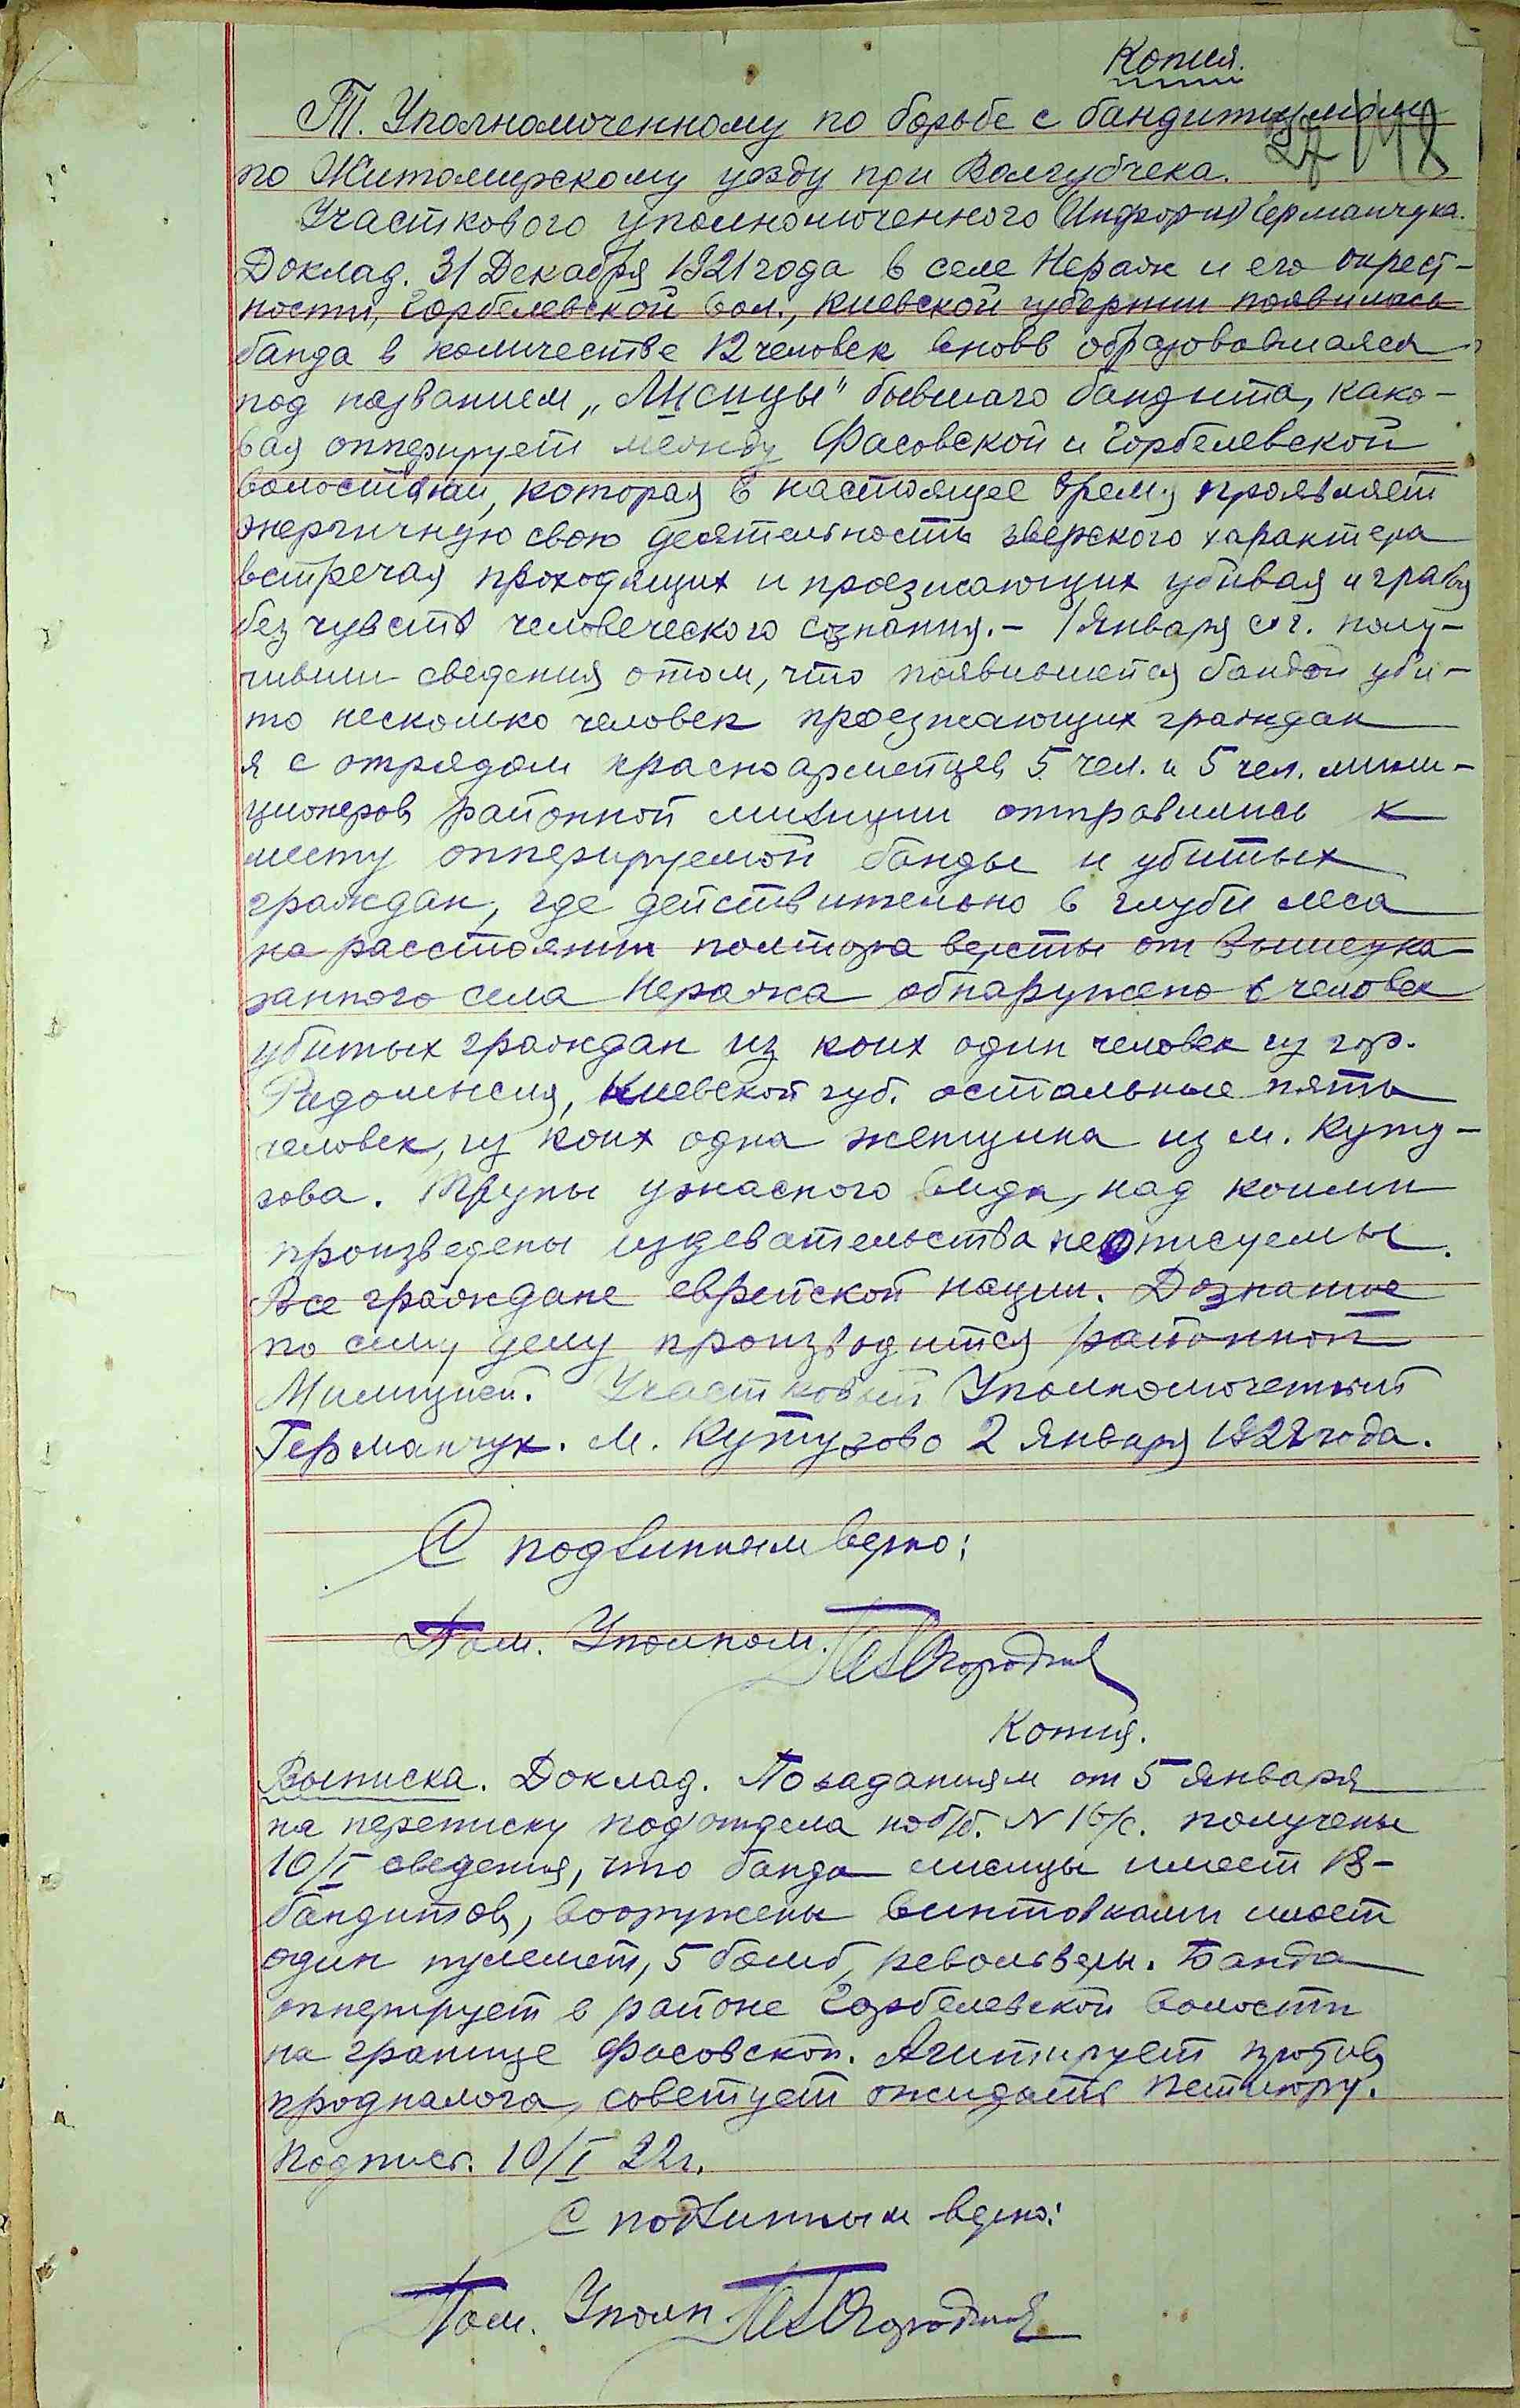 Копия.
Т. Уполномоченному по борьбе с бандитизмом
по Житомирскому уезду при Волгубчека.
Участкового уполномоченного (Информ) Германчука.
Доклад. 31 Декабря 1921 года в селе Нераж и его окрест-
ности, Горбелевской вол., Киевской губернии появилась
банда в количестве 12 человек вновь образовавшаяся
под названием „Лисицы" бывшаго бандита, како-
вая опперирует между Фасовской и Горбелевской
волостями, которая в настоящее время проявляет
энергичную свою деятельность зверского характера
встречая проходящих и проезжающих убивая и грабя
без чувств человеческого сознания. - 1 Января с.г. полу-
чивши сведения о том, что появившейся бандой уби-
то несколько человек проезжающих граждан
я с отрядом красноармейцев 5 чел. и 5 чел. мили-
ционеров районной милиции отправились к
месту опперируемой банды и убитых
граждан, где действительно в глуби леса
на расстоянии полтора версты от вышеука-
занного села Неража обнаружено 6 человек
убитых граждан из коих один человек из гор.
Радомысля, Киевской губ. остальные пять
человек, из коих одна женщина из м. Куту-
зова. Трупы ужасного вида, над коими
произведены издевательства неописуемы.
Все граждане еврейской нации. Дознание
по сему делу производится районной
Милицией. Участковый Уполномоченный
Германчук. м. Кутузово 2 Января 1922 года.
С подлинным верно:
Пом. Уполном.
Копия.
Выписка. Доклад. По заданиям от 5 Января
на переписку подотдела по б/б. N 16/с. получены
10/I сведения, что банда лисицы имеет 18-
бандитов, вооружены винтовками имеет
один пулемет, 5 бомб, револьверы. Банда
опперирует в районе Горбелевской волости
на границе Фасовской. Агитирует против
продналога, советует ожидать Петлюру.
Подпись. 10/I 22г.
С подлинным верно:
Пом. Уполн.